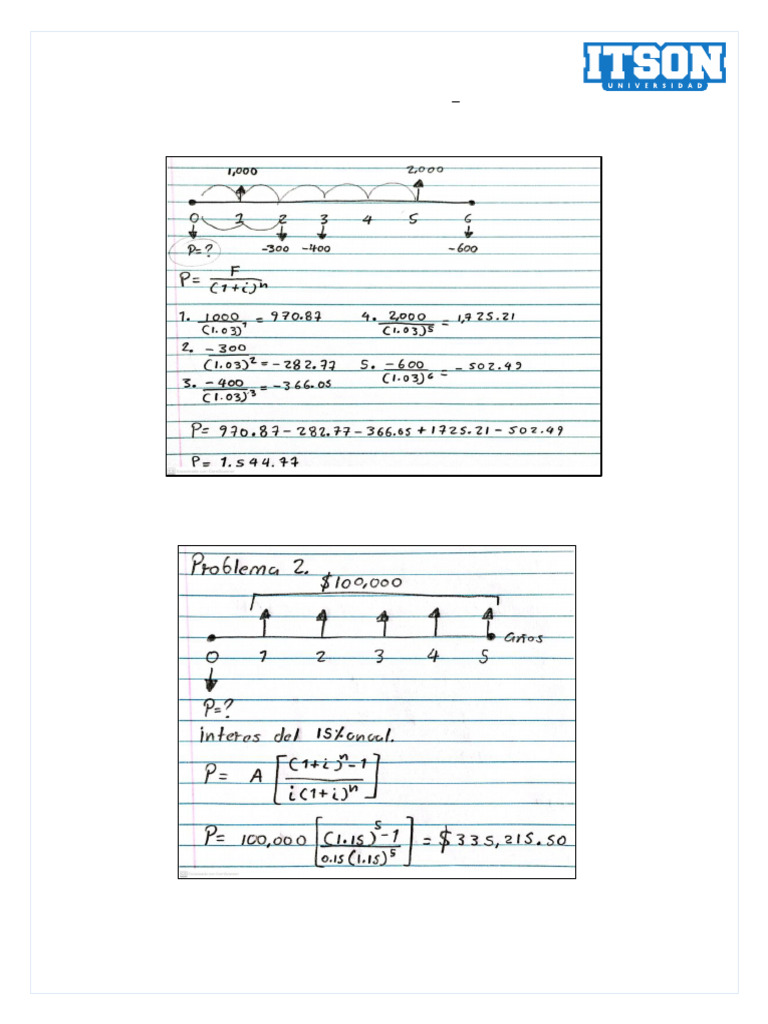 ITSON
UNIVERSIDAD
1,000 2,000
0 1 2 3 4 5 6
P=? -300 -400 -600
P= F / (1+i)^n
1. 1000 / (1.03)^1 = 970.87 4. 2,000 / (1.03)^5 = 1,725.21
2. -300 / (1.03)^2 = -282.77 5. -600 / (1.03)^6 = -502.49
3. -400 / (1.03)^3 = -366.05
P= 970.87-282.77-366.05+1725.21-502.49
P= 1.544.77
Problema 2.
$100,000
0 1 2 3 4 5 años
P=?
interes del 15% anual.
P= A [ (1+i)^n-1 / i(1+i)^n ]
P= 100,000 [ (1.15)^5-1 / 0.15(1.15)^5 ] = $335,215.50